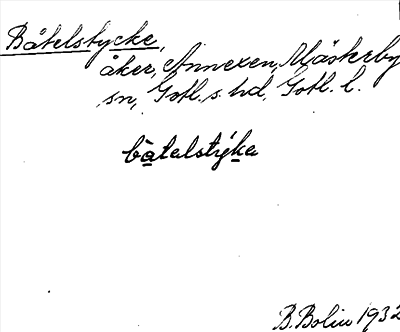 Båtelstycke,
åker, Annexen, Mästerby
sn, Gotl. s. hd, Gotl. l.
bàtelstýka
B. Bolin 1932